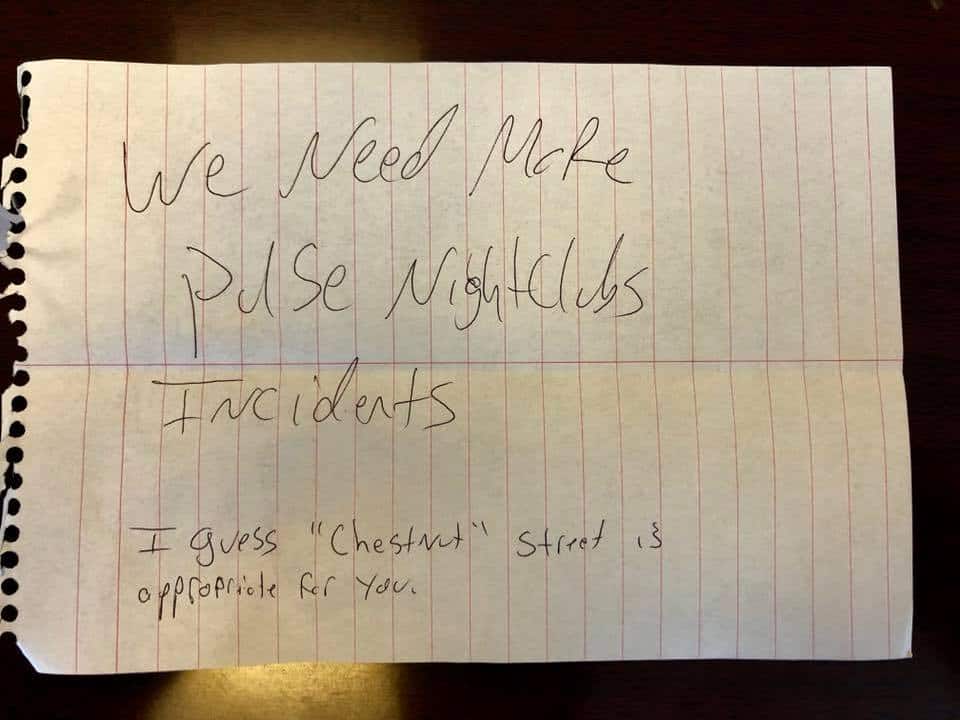 We Need Make
Pulse Nightclubs
Incidents
I guess "Chestnut" Street is
appropriate for you.